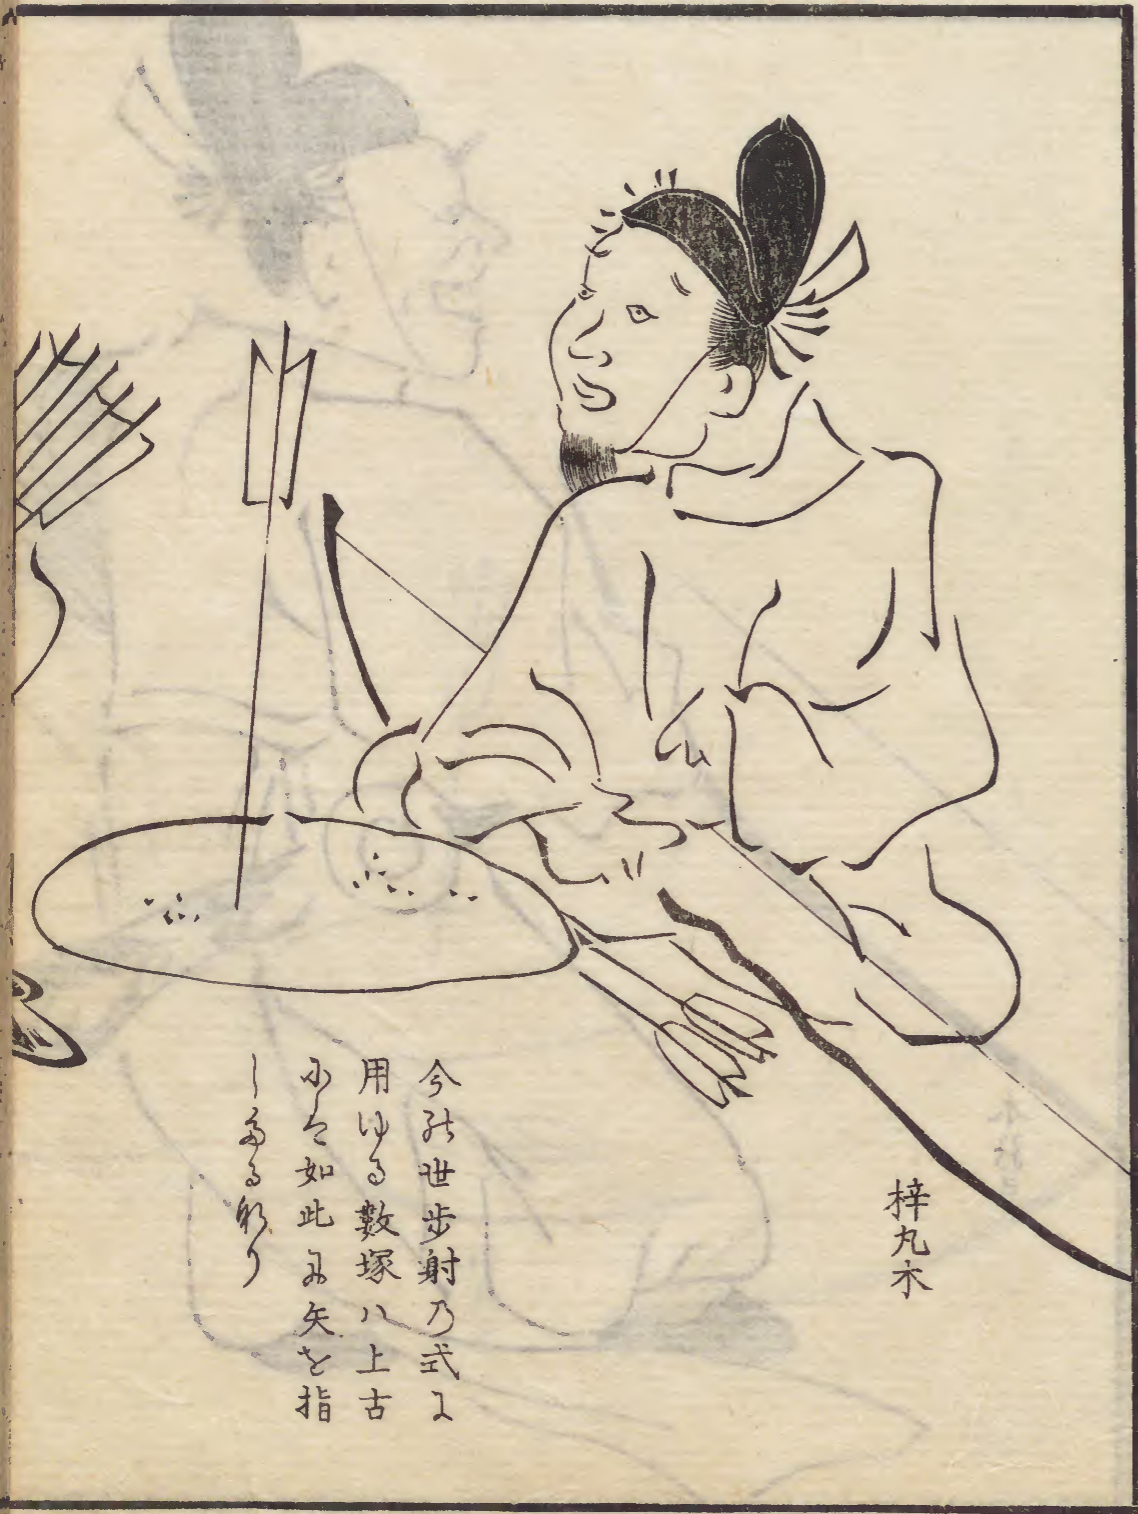 梓丸木
今の世歩射乃式に
用ゆる數塚ハ上古
にハ如此に矢を指
したるなり